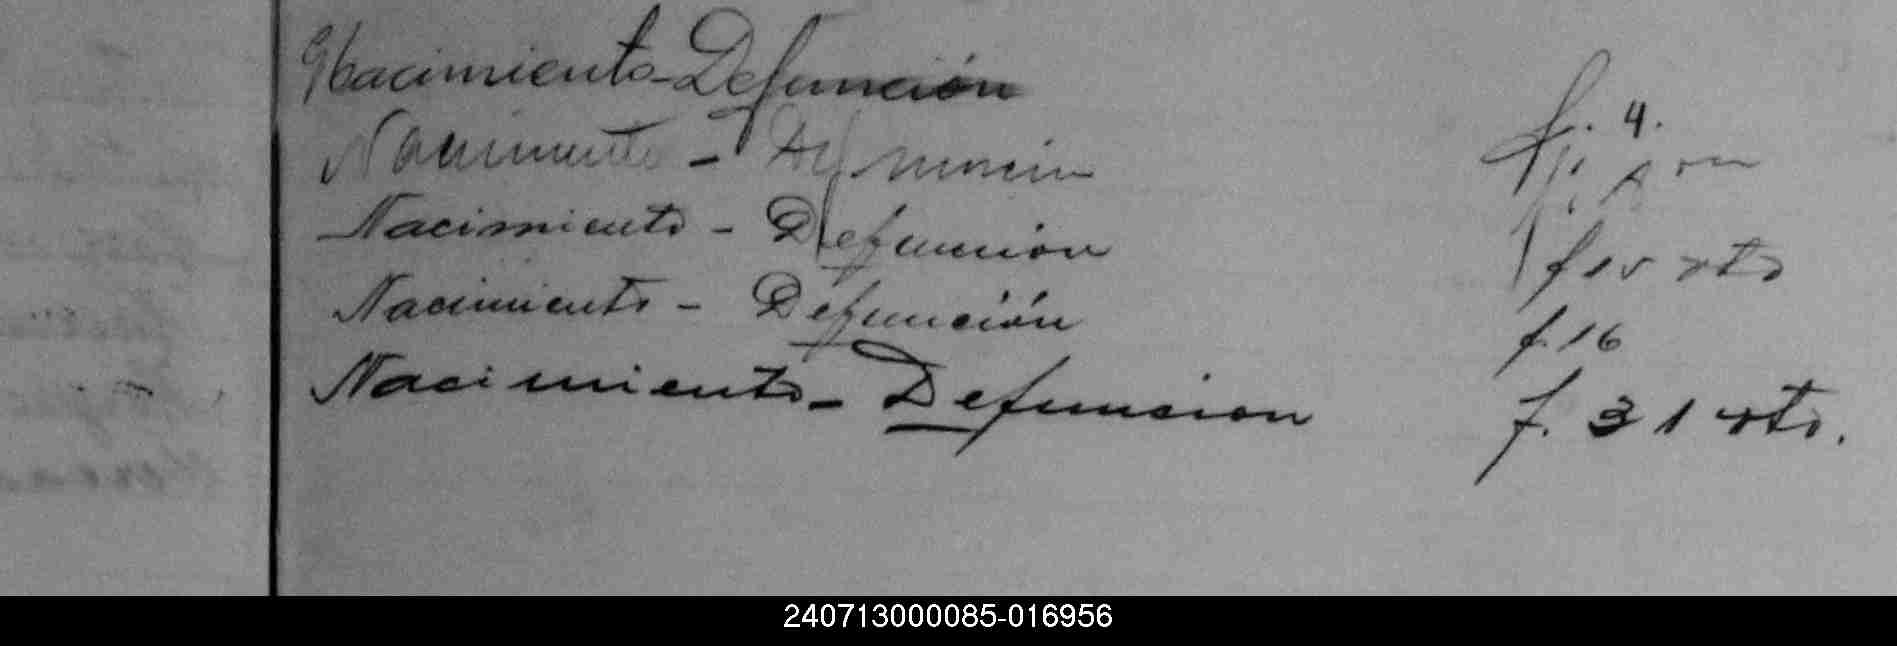 Nacimiento-Defunción f. 4.
Nacimiento - Defunción
Nacimiento - Defunción f 15 vto
Nacimiento - Defunción f. 16
Nacimiento - Defuncion f. 31 vto.
240713000085-016956